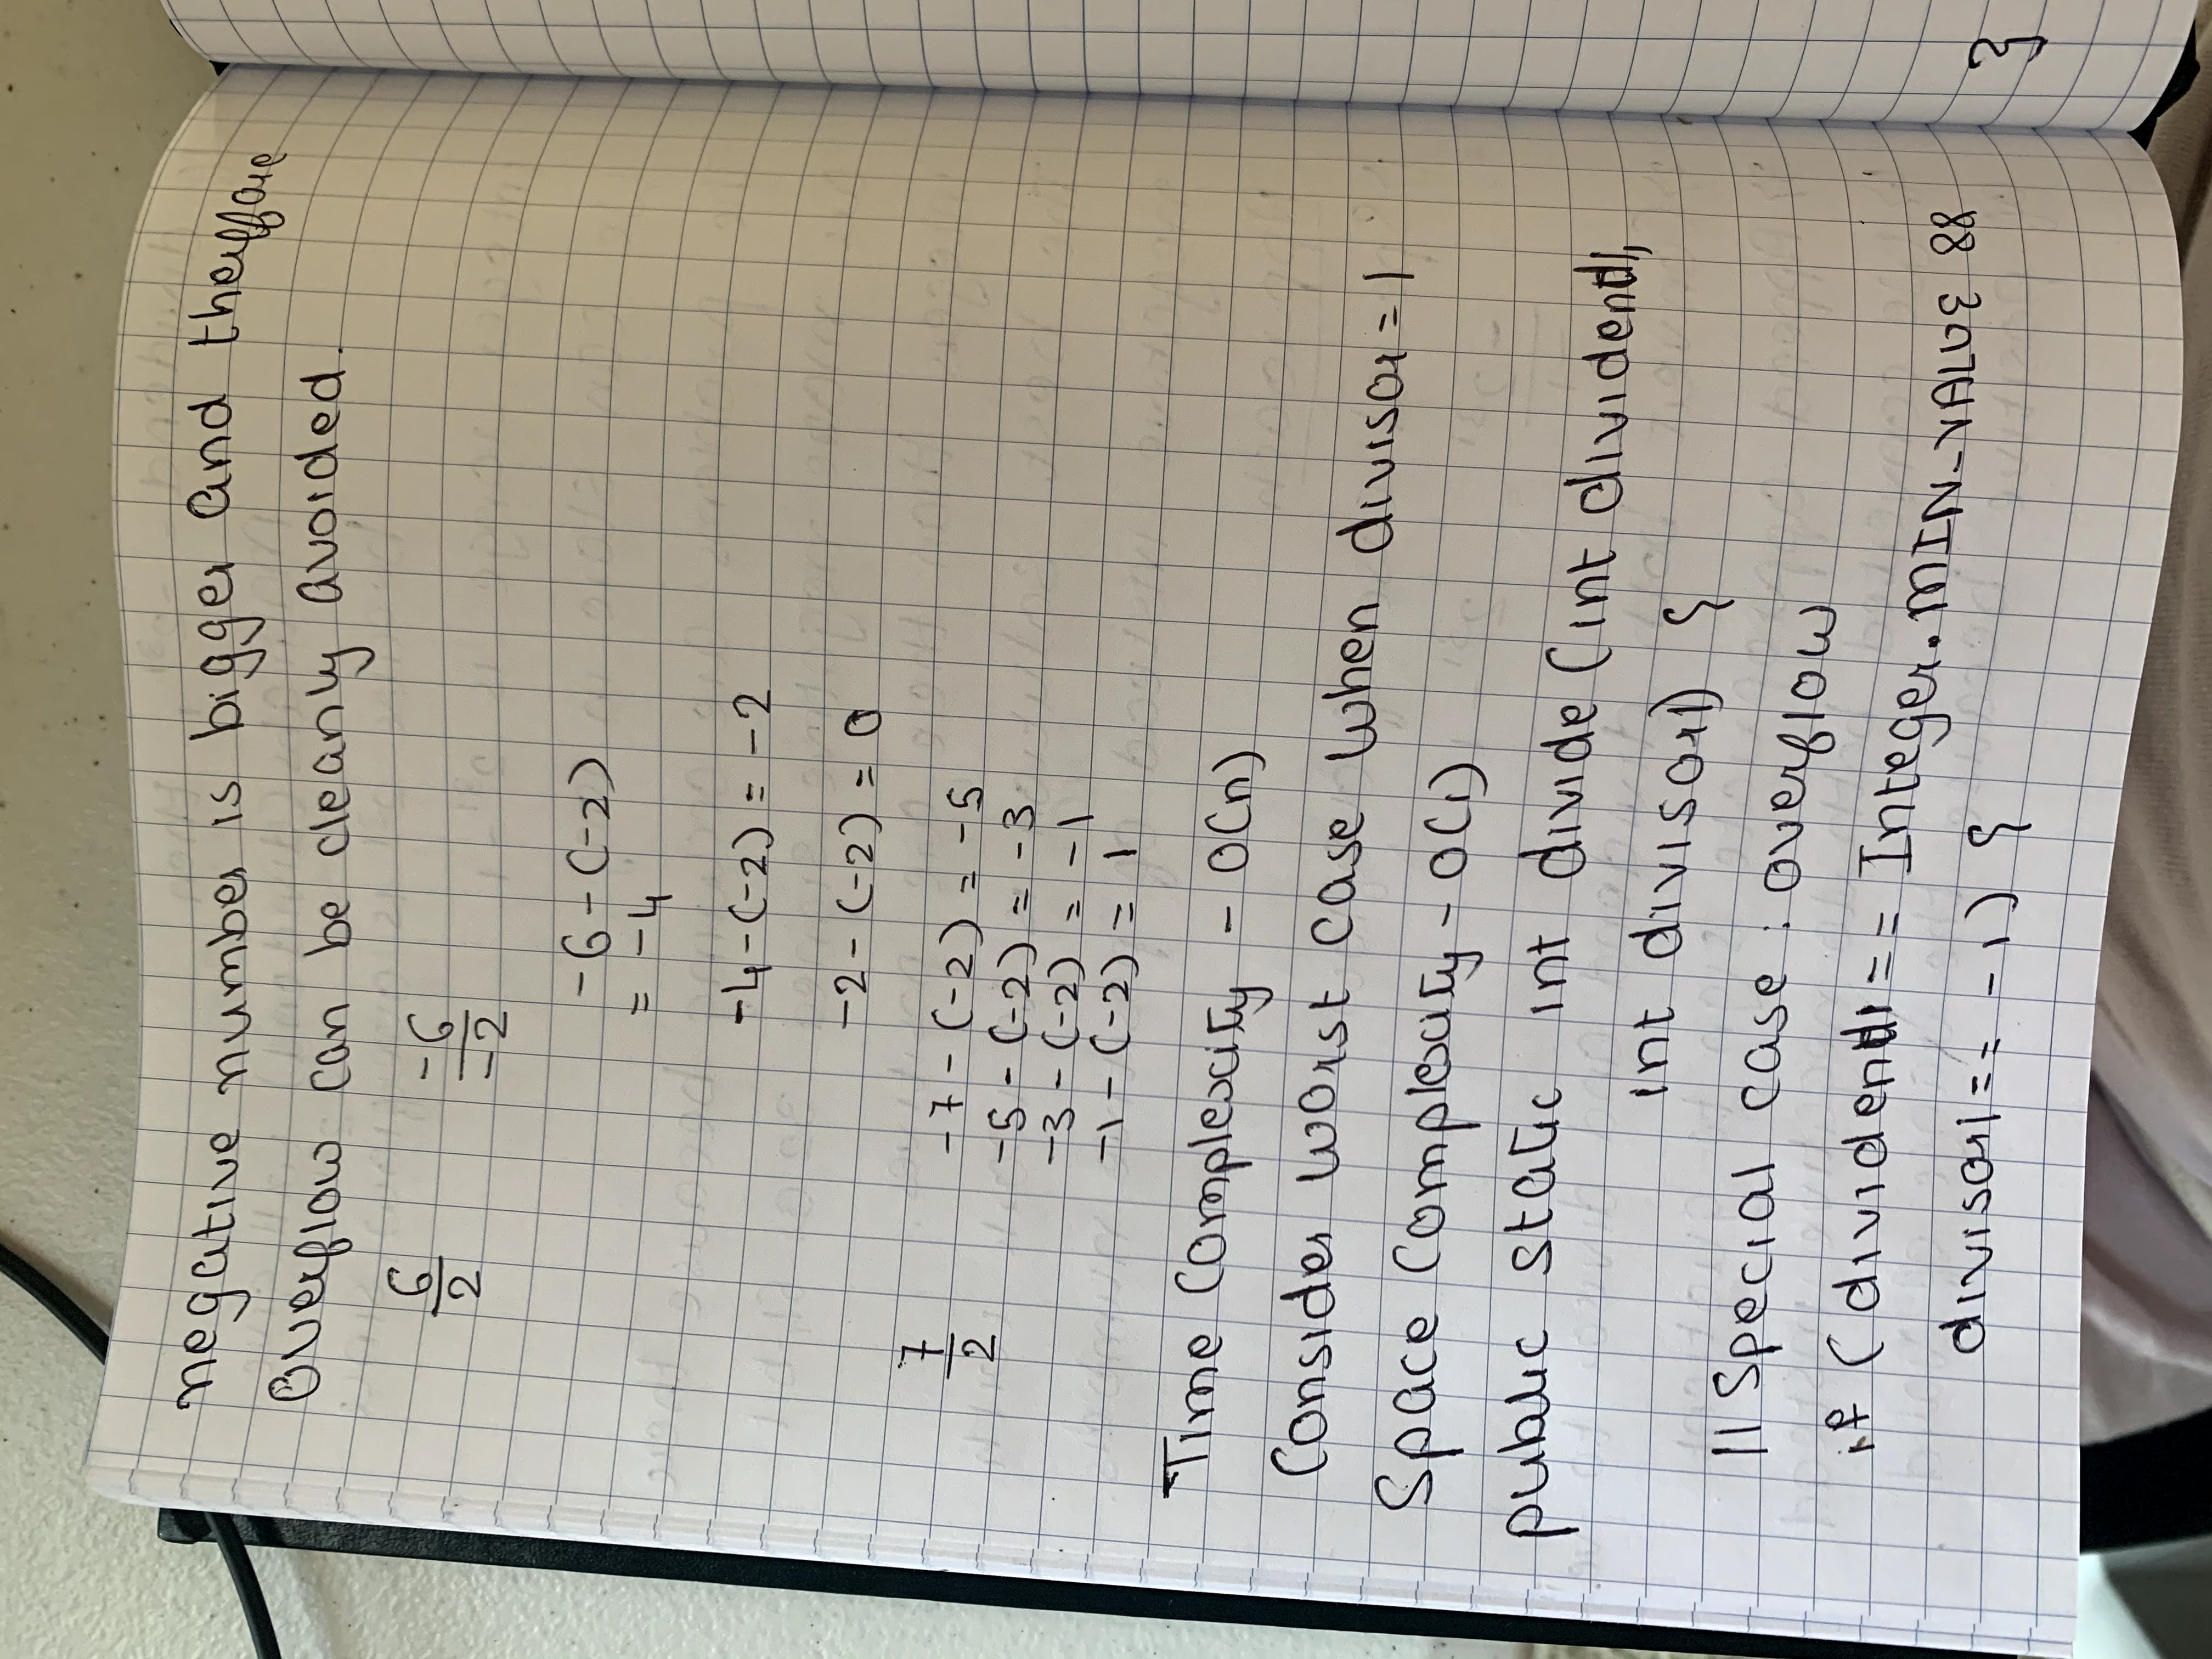 negative number is bigger and therefore
overflow can be cleanly avoided.
6/2   -6/-2
-6-(-2)
= -4
-4-(-2) = -2
-2-(-2) = 0
7/2   -7-(-2) = -5
-5-(-2) = -3
-3-(-2) = -1
-1-(-2) = 1
Time Complexity - O(n)
Consider worst case when divisor = 1
Space Complexity - O(1)
public static int divide (int dividend1,
int divisor1) {
// Special case : overflow
if (dividend1 == Integer.MIN_VALUE &&
divisor1 == -1) {
}